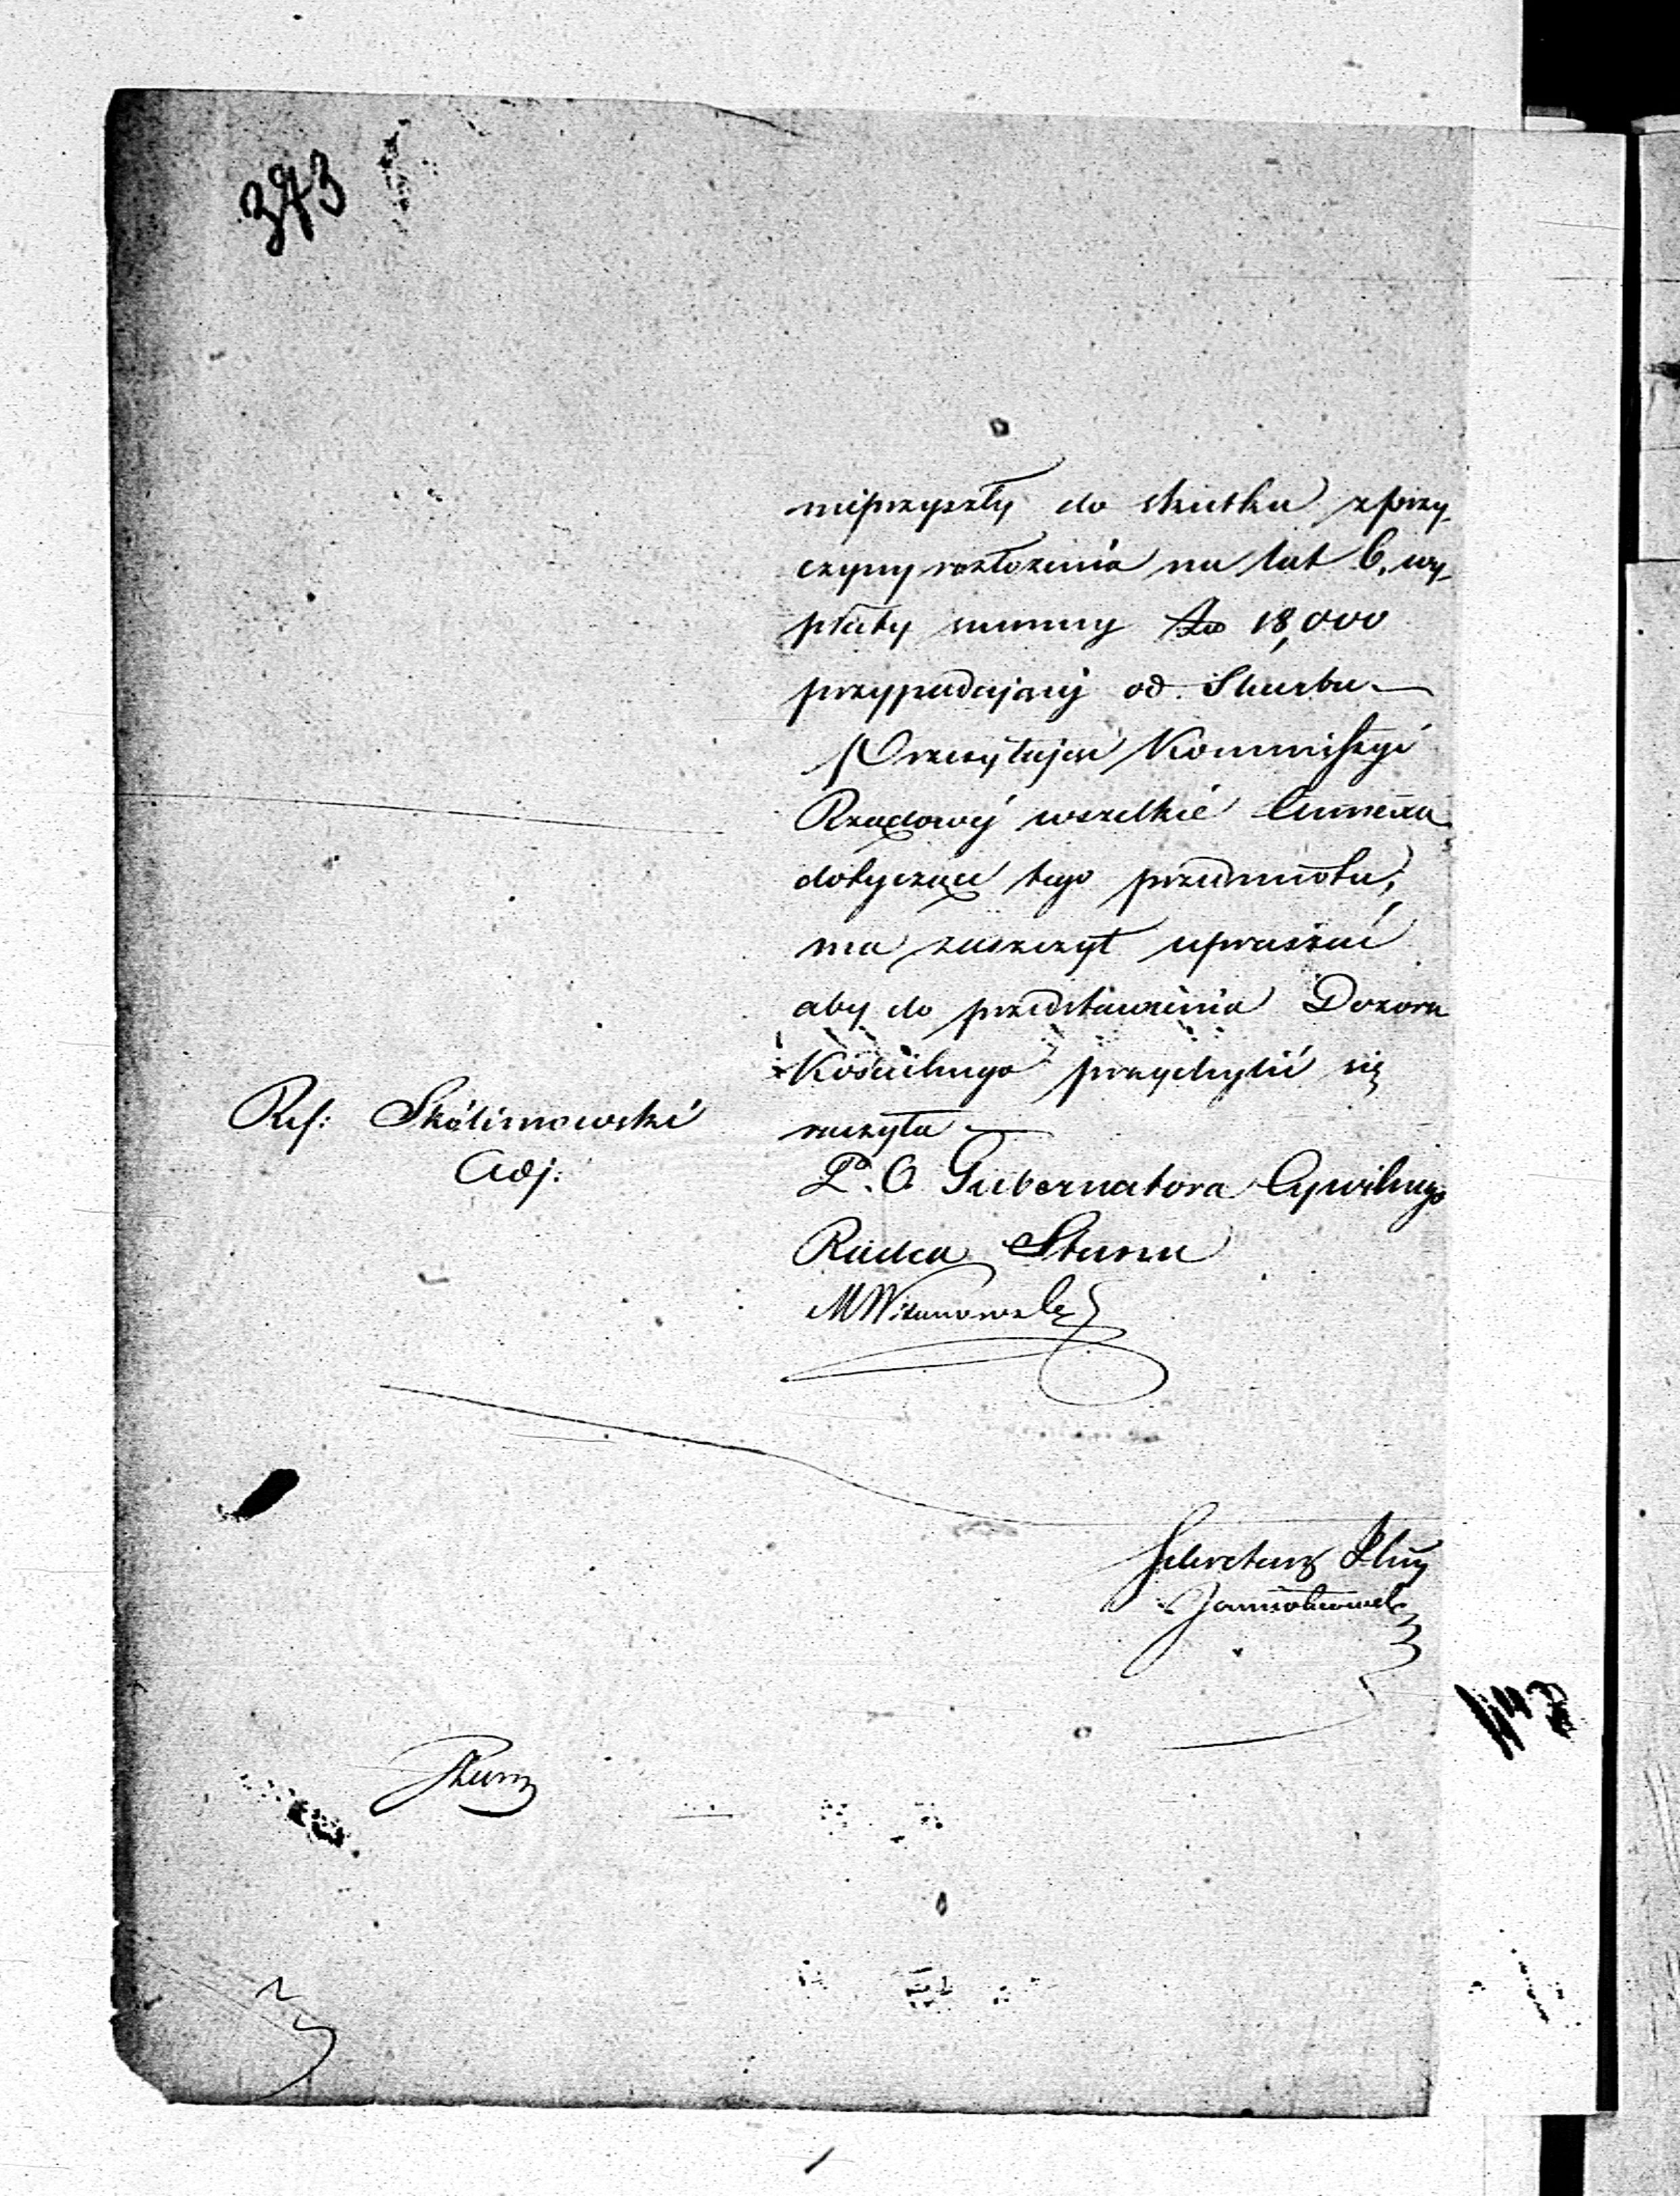 343
nieprzyszły do skutku zprzy
czyny rozłożenia na lat 6, wy
płaty summy Zło 18,000
przypadającej od Skarbu —
Przesyłając Kommissyi
Rządowej wszelkie
dotyczące tego przedmiotu,
ma zaszczyt upraszać
aby do przedstawienia Dozoru
Kościelnego przychylić się
raczyła —
Ref: Skolimowski
Adj:
P. O. Gubernatora Cywilnego
Radca Stanu
Sekretarz